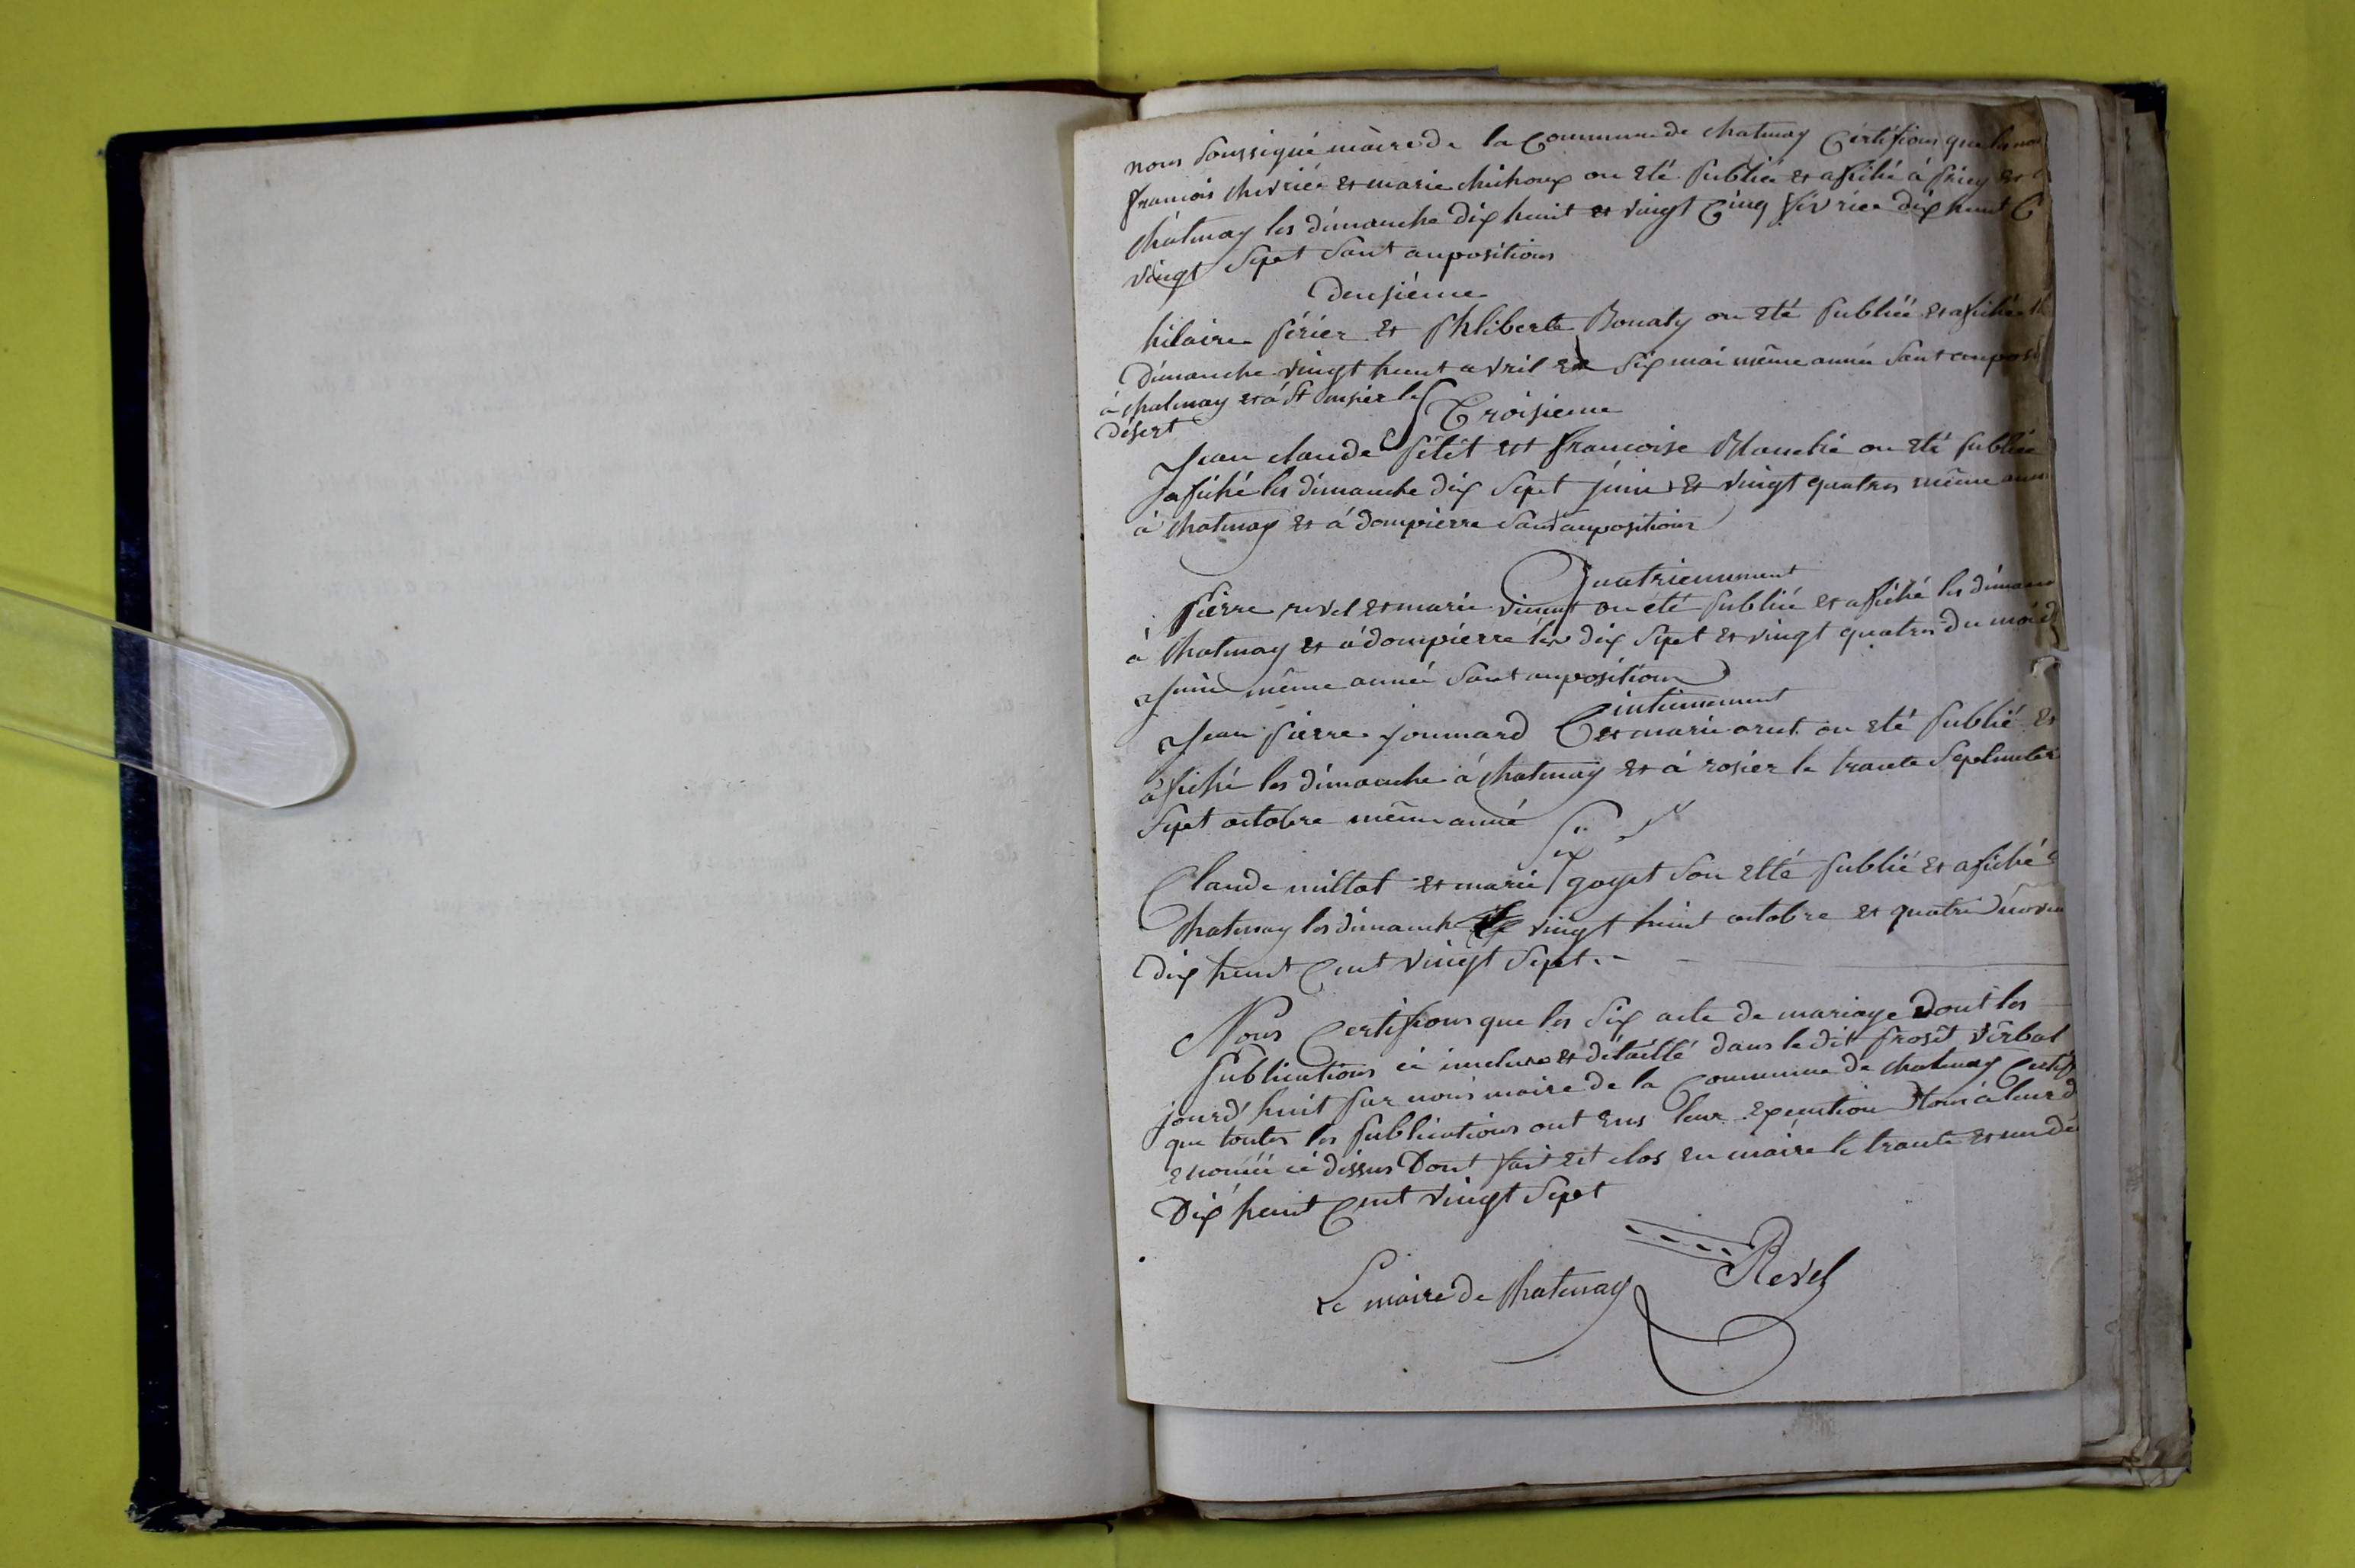 nous soussigné maire de la Commune de chatenay Certifions que les
francois chevrier et marie chuhoux on été publié et afiché à et
chatenay les dimanche dix huit et vingt Cinq février dix huit C
vingt sept sant auposition
deusiéme
hilaire périer et philiberte Bonaty on été publiéé et afichéé
dimanche vingt huit avril et six mai même année sant auposi
à chatenay et à st le
désert
Troisieme
Jean claude petit et francoise Blanché on été publiée
afiché les dimanche dix sept juin et vingt quatres même
à chatenay et à dompierre sant aupositions
Quatriemement
pierre revel et marie vincent on été publié et afiché les dimanc
à chatenay et à dompierre les dix sept et vingt quatres du mois d
Juin même année sant auposition
Cintiemement
Jean pierre jommard et marie on été publié et
afiché les dimanche à chatenay et à rosier le trante septembre
sept octobre même année
Six
Claude millat et marie goyet son etté publié et afiché à
chatenay les dimanche vingt huit octobre et quatre novem
dix huit Cent vingt sept.
Nous Certifions que les six acte de mariage dont les
publications ci incluse et détaillé dans le dit prosêt vêrbal
jourd'huit par nous maire de la Commune de chatenay Certif
que toutes les publications ont eus leur exécution à leur d
énoméé cé dessus Dont fait et clos en mairé le trante et un dé
Dix huit Cent vingt sept
Le maire de chatenay Revel